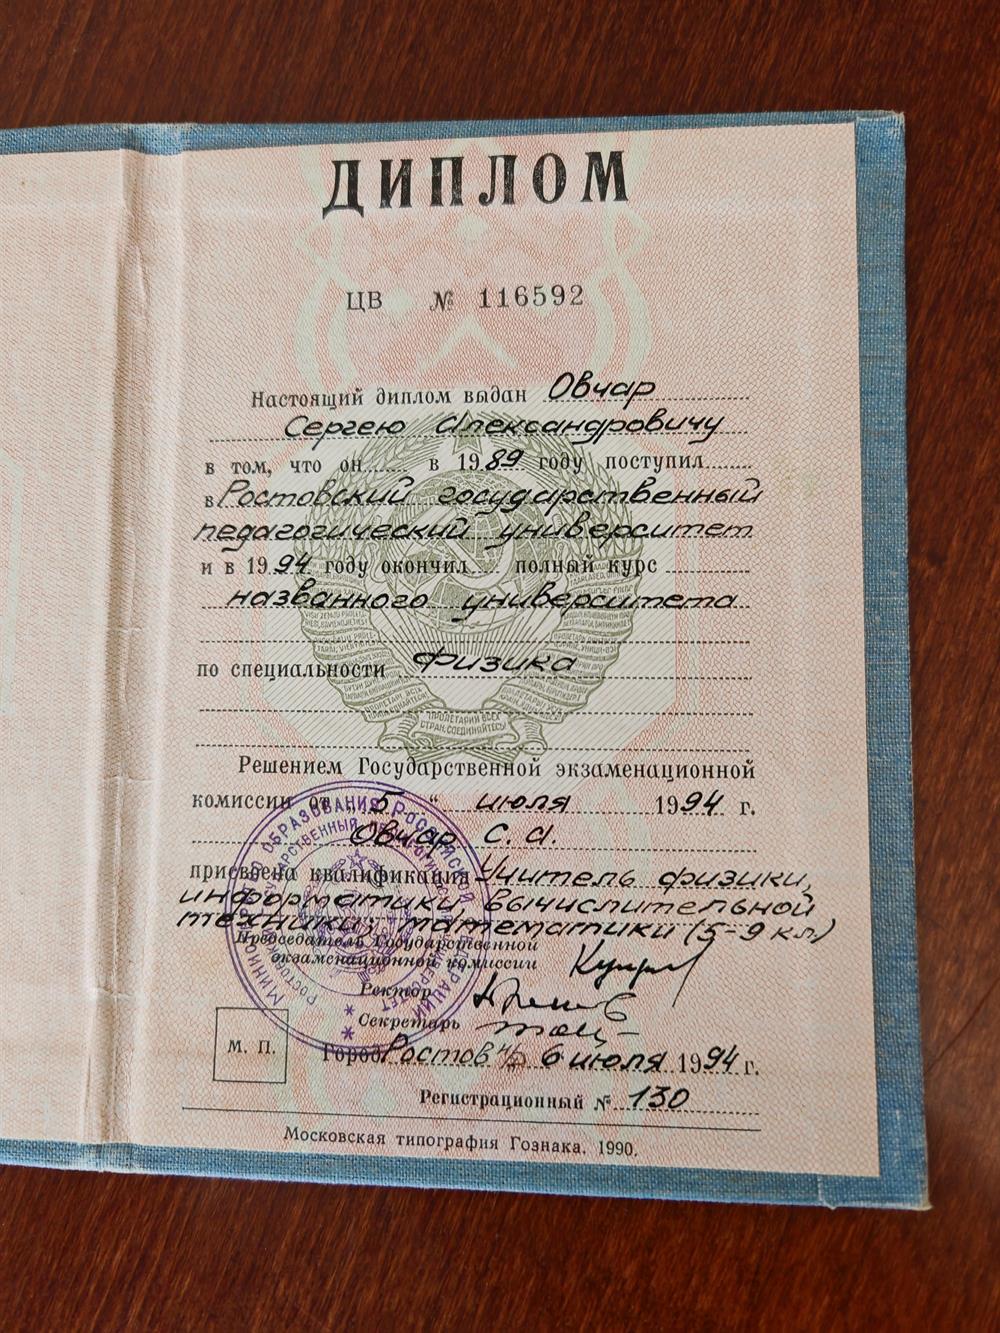 ДИПЛОМ
ЦВ № 116592
Настоящий диплом выдан Овчар
Сергею Александровичу
в том, что он в 1989 году поступил
в Ростовский государственный
педагогический университет
и в 1994 году окончил полный курс
названного университета
по специальности физика
ПРОЛЕТАРИИ ВСЕХ
СТРАН, СОЕДИНЯЙТЕСЬ!
Решением Государственной экзаменационной
комиссии от „5“ июля 1994 г.
Овчар С. А.
присвоена квалификация Учитель физики,
информатики, вычислительной
техники; математики (5-9 кл.)
Председатель Государственной
экзаменационной комиссии
Ректор
Секретарь
М. П.
Город Ростов н/Д 6 июля 1994 г.
Регистрационный № 130
Московская типография Гознака. 1990.